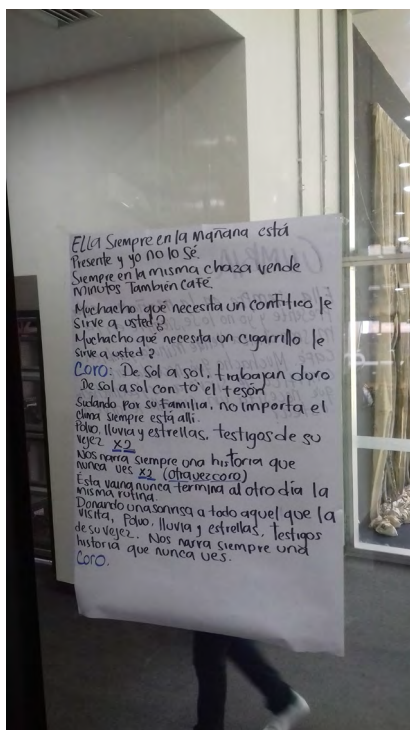 Ella Siempre en la Mañana está
Presente y yo no lo sé.
Siempre en la misma chaza vende
Minutos También café.
Muchacho qué necesita un contitico le
sirve a usted?
Muchacho qué necesita un cigarrillo le
sirve a usted?
Coro: De sol a sol, trabajan duro
De sol a sol con to' el tesón
Sudando por su Familia, no importa el
clima siempre está allí.
Polvo, lluvia y estrellas, testigos de su
vejez X2
Nos narra siempre una historia que
nunca ves X2 (otra vez coro)
Esta vaina nunca termina al otro día la
misma rutina.
Donando una sonrisa a todo aquel que la
visita, Polvo, lluvia y estrellas, Testigos
de su vejez. Nos narra siempre una
historia que nunca ves.
Coro.